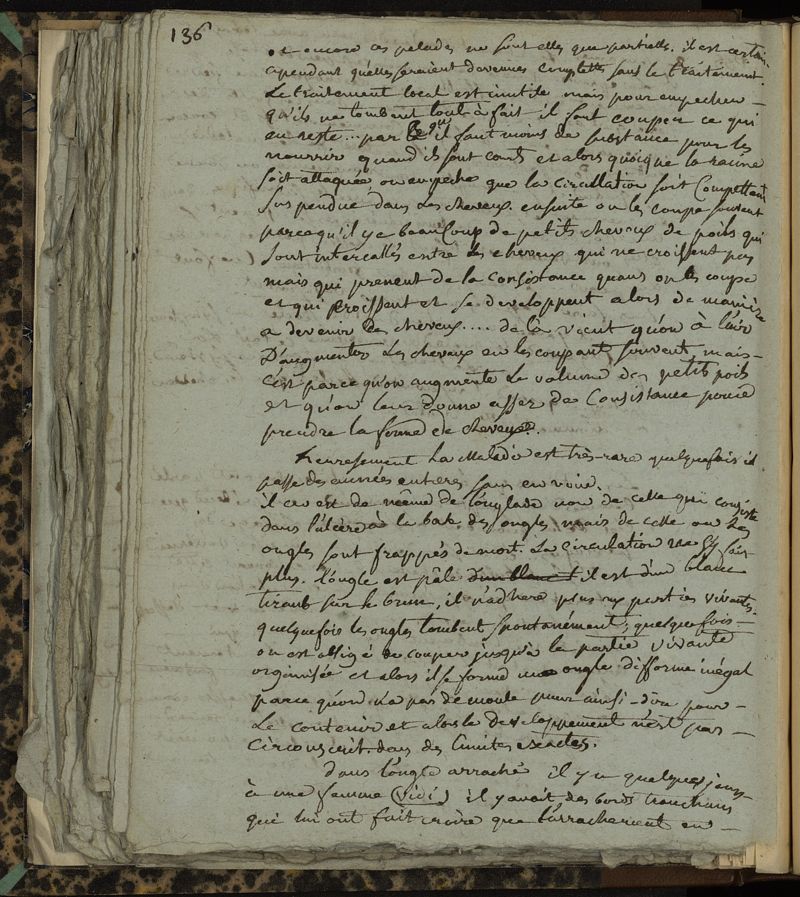 136
et encore ces pelades ne sont elles que partielles. il est certain
cependant qu'elles seraient devenues complettes sans le traitement.
Le traitement local est inutile mais pour empecher
qu'ils ne tombent tout à fait il faut couper ce qui
en reste... par ce qu'il faut moins de substance pour les
nourrir quand ils sont courts et alors quoique la racine
soit attaquée on empeche que la circullation soit complettent
suspendue dans les cheveux. ensuite on les coupe souvent
parcequ'il y a beaucoup de petits cheveux de poils qui
sont intercallés entre les cheveux qui ne croissent pas
mais qui prenent de la consistance quand on les coupe
et qui croissent et se developpent alors de maniere
a devenir des cheveux.... de là vient qu'on à l'air
D'augmenter les cheveux en les coupant souvent, mais
c'est parcequ'on augmente le volume des petits poils
et qu'on leur donne assez de consistance pour
prendre la forme de cheveux.
heureusement la maladie est très-rare quelquefois il
passe des années entieres sans en voir.
il en est de même de l'onglade non de celle qui consiste
dans l'ulcère à la base des ongles mais de celle ou les
ongles sont frappés de mort. La circulation ne s'y fait
plus. l'ongle est pâle d'un blanc il est d'un blanc
tirant sur le brun, il n'adhere plus aux parties vivantes.
quelquefois les ongles tombent spontanément; quelquefois
on est obligé de couper jusqu'à la partie vivante
organisée et alors il se forme un ongle difforme inégal
parce qu'on n'a pas de moule pour ainsi-dire pour
le contenir et alors le developpement n'est pas
circonscrit dans des limites exactes.
dans l'ongle arraché il y a quelques jours
à une femme (vidi) il y avait des bords tranchans
qui lui ont fait croire que l'arrachement en